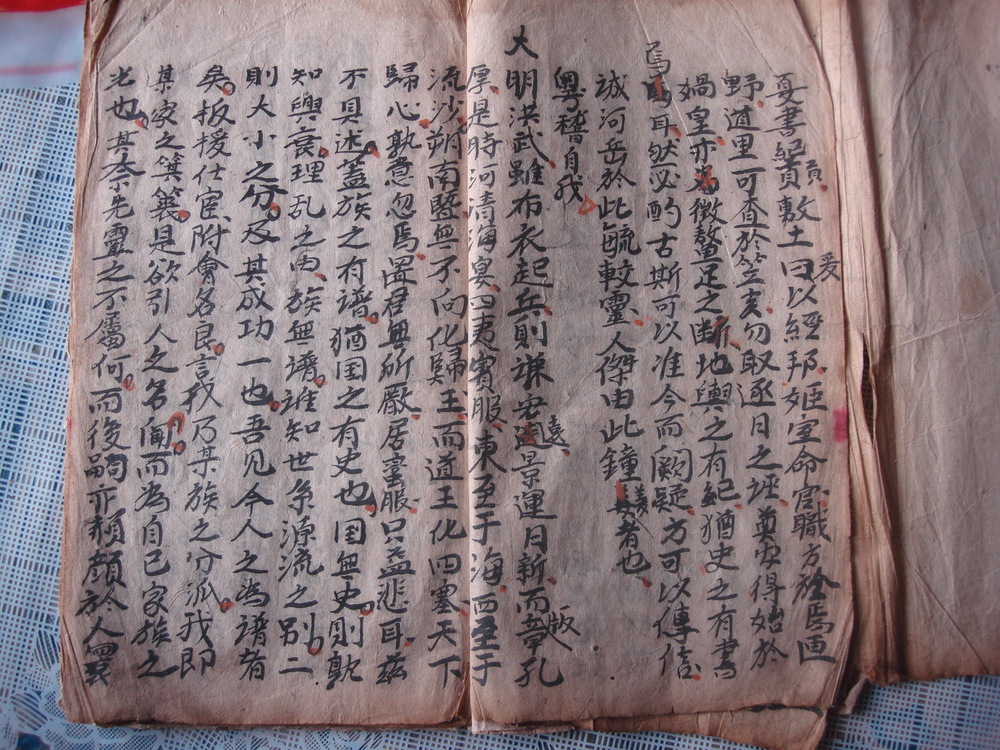 夏書紀貢敷土曰以經邦姬室命官職方於焉画
野道里可查於竺亥勿取逐日之誣奠安得始於
媧皇亦為徵鰲足之斷地輿之有紀猶史之有書
焉耳然必酌古斯可以准今而闕疑方可以傳信
誠河岳於此毓較靈人傑由此鐘者也
粵稽自我
大明洪武雖布衣起兵則謙宏遠景運日新而章孔
厚是時河清海宴四夷賓服東至于海西至于
流沙朔南暨無不向化歸王而遵王化四塞天下
歸心孰意忽焉置君無所嚴居蛮服只益悲耳茲
不具述蓋族之有譜猶国之有史也国無史則孰
知興衰理乱之由族無譜誰知世系源流之别二
則大小之分及其成功一也吾见今人之為譜者
矣板援仕宦附會名良言我乃某族之分派我即
某家之箕裘是欲引人之名闻而為自已家族之
光也其奈先靈之不屬何而後嗣亦赧顔於人